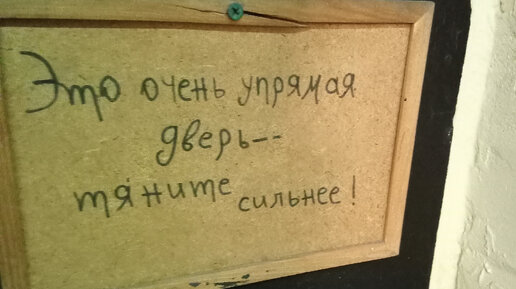 Это очень упрямая
дверь--
тяните сильнее!